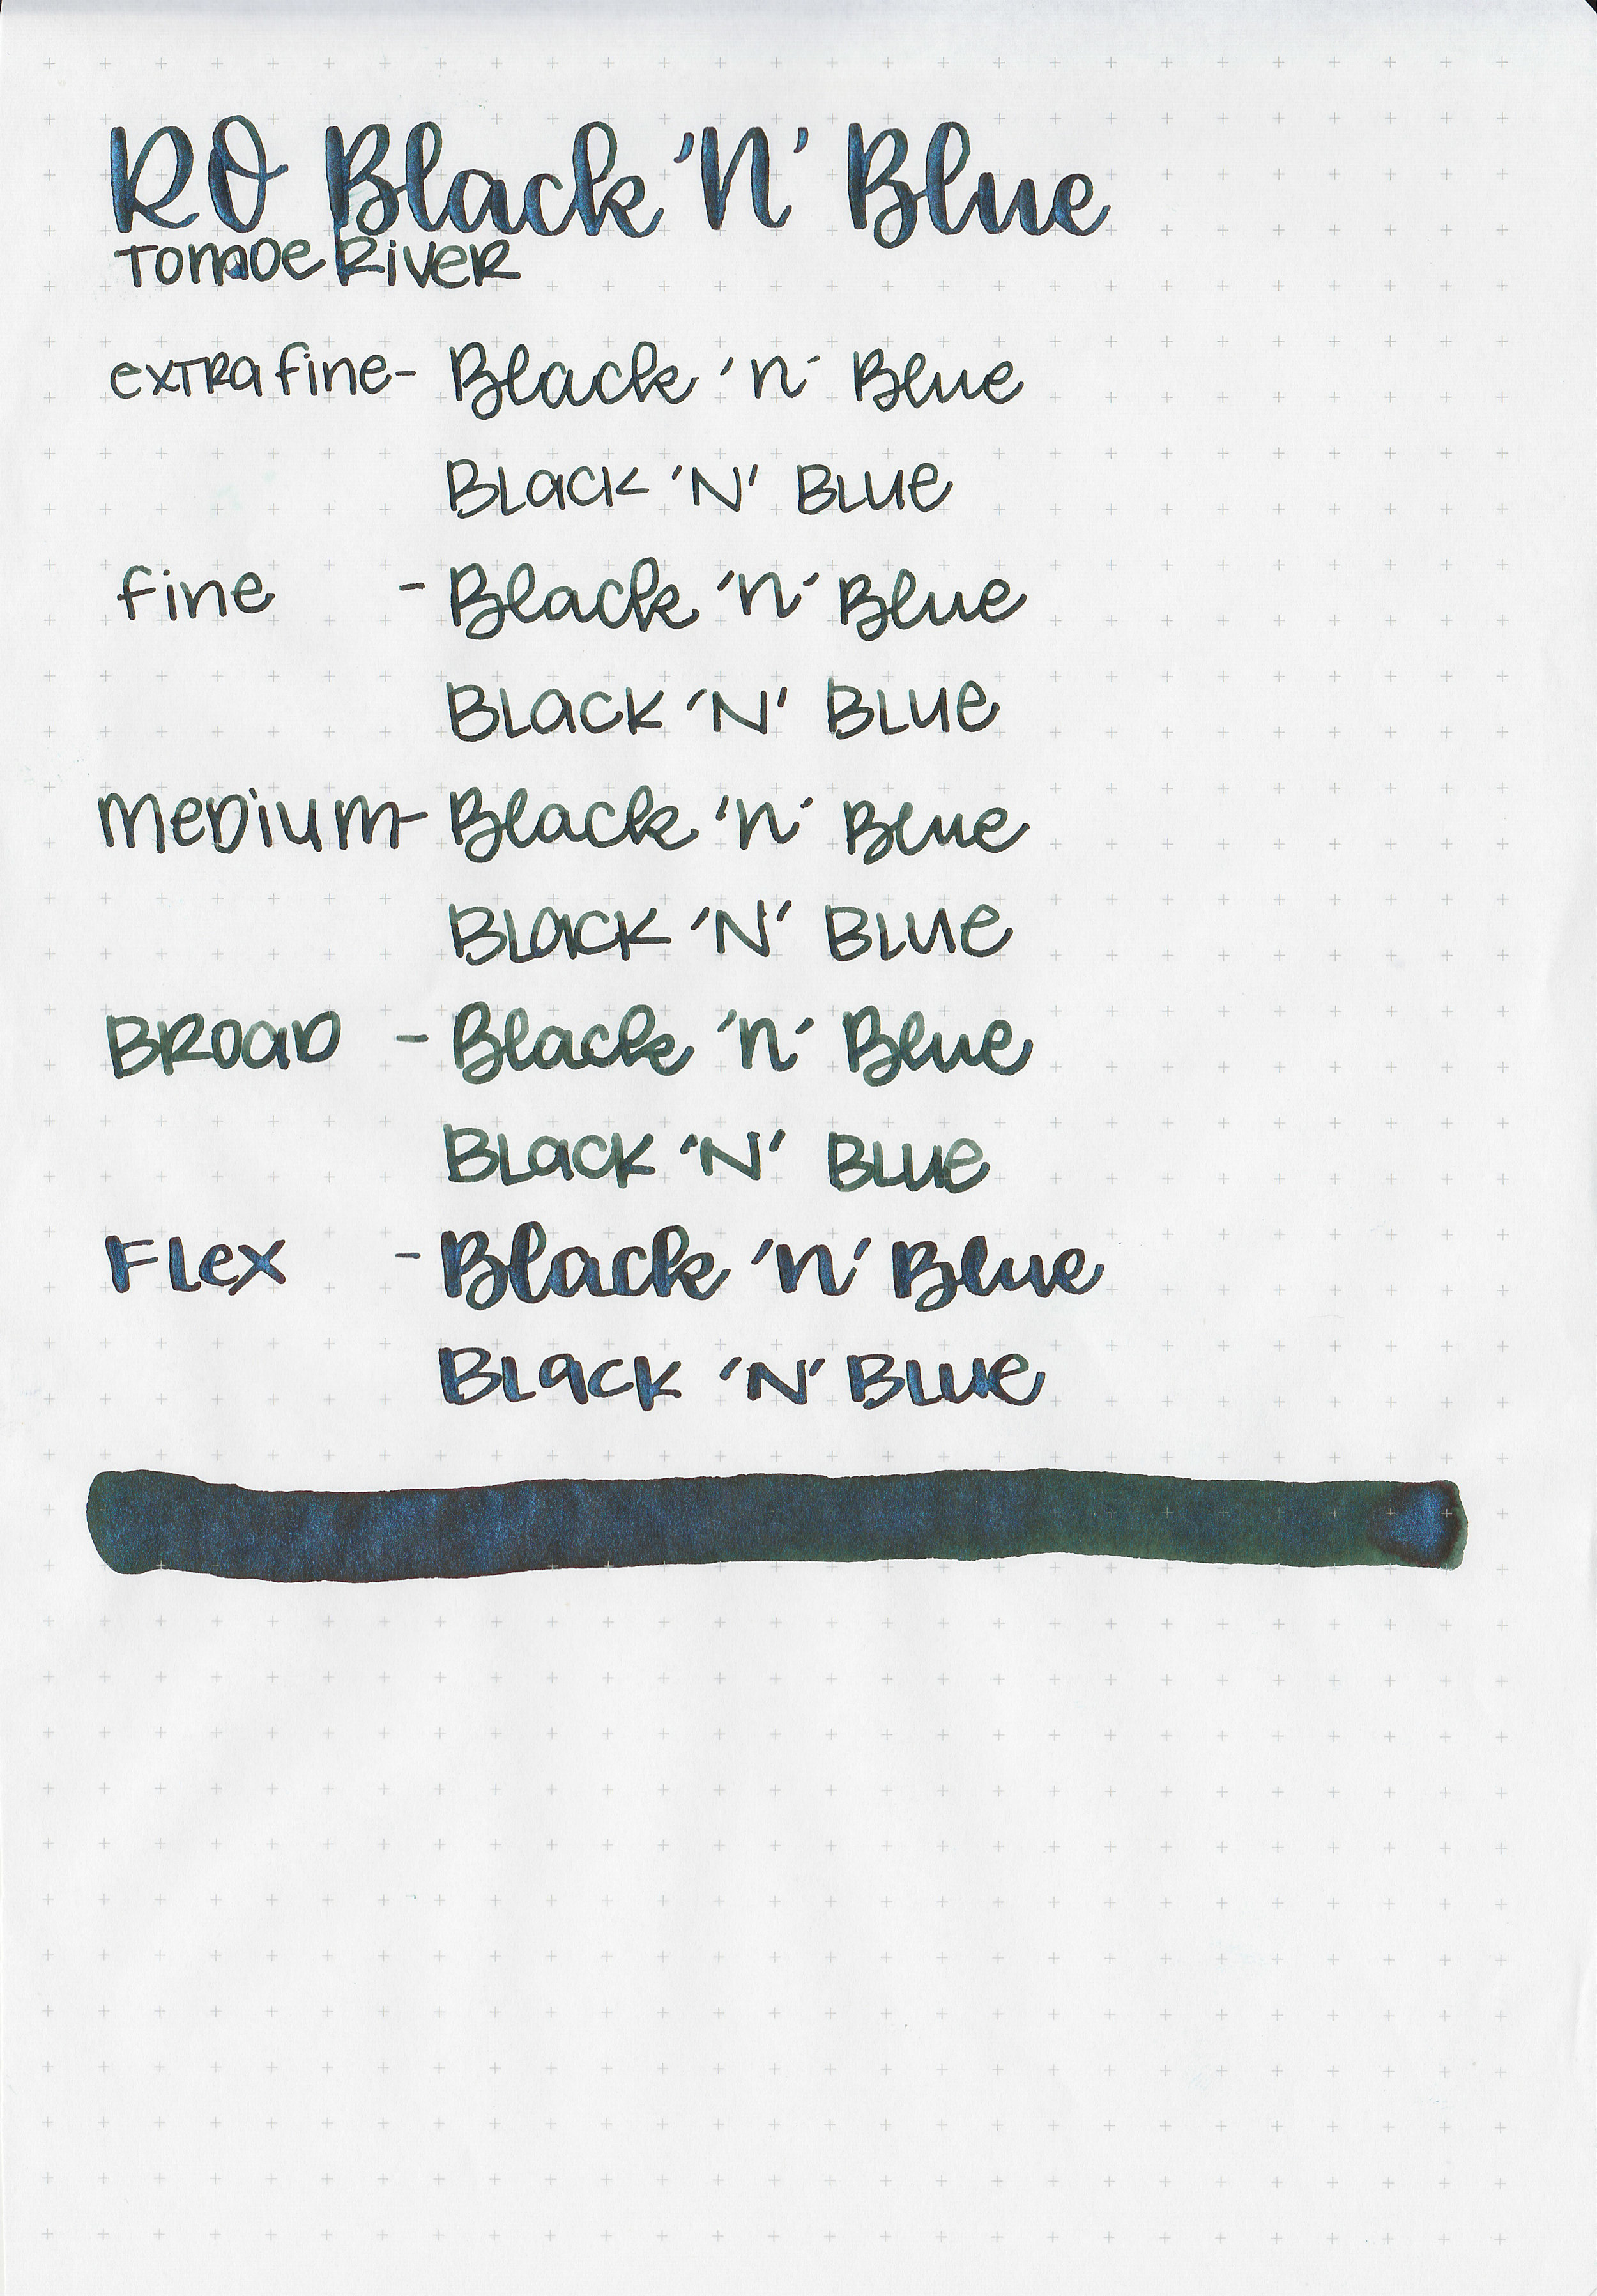 RO Black 'N' Blue
Tomoe River
extra fine - Black 'n' Blue
BLACK 'N' BLUE
fine - Black 'n' Blue
BLACK 'N' BLUE
Medium - Black 'n' Blue
BLACK 'N' BLUE
BROAD - Black 'n' Blue
BLACK 'N' BLUE
Flex - Black 'n' Blue
BLACK 'N' BLUE